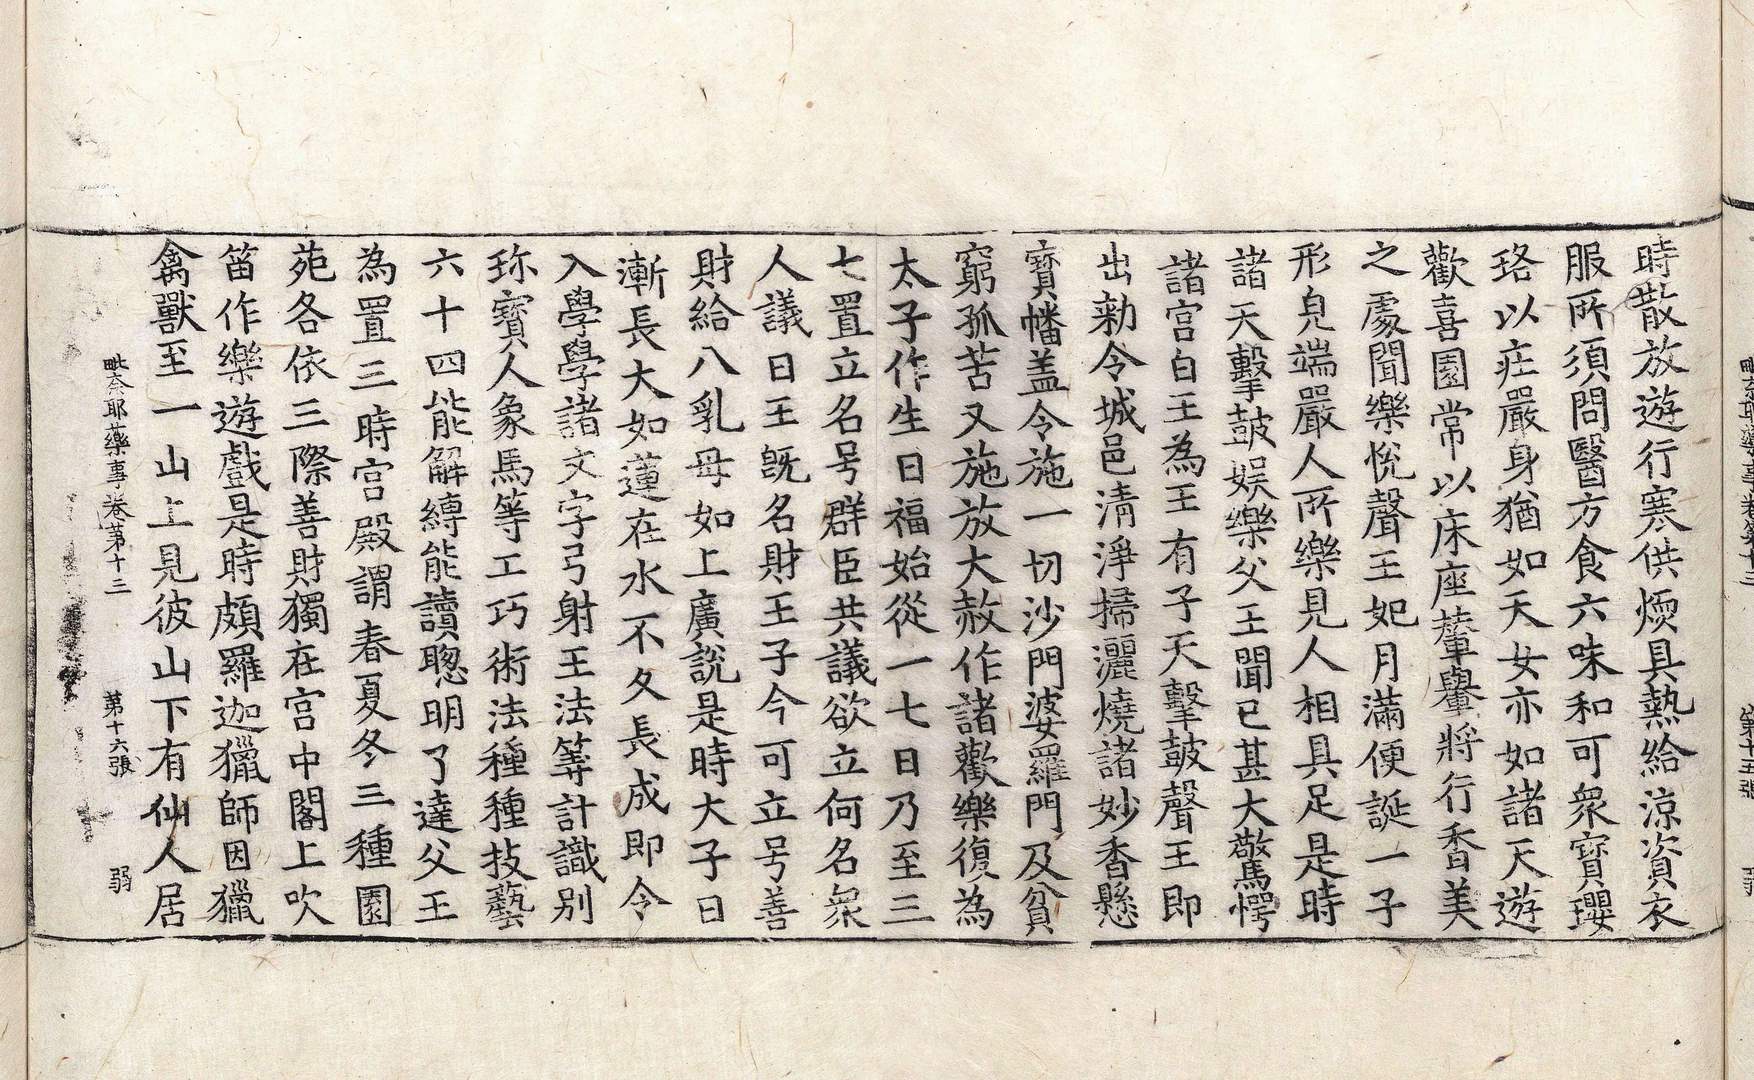 時散放遊行寒供煗具熱給涼資衣
服所須問醫方食六味和可衆寶瓔
珞以莊嚴身猶如天女亦如諸天遊
歡喜園常以床座輦轝將行香美
之處聞樂悅聲王妃月滿便誕一子
形皃端嚴人所樂見人相具足是時
諸天擊鼓娛樂父王聞已甚大驚愕
諸宮白王為王有子天擊鼓聲王即
出勑令城邑淸淨掃灑燒諸妙香懸
寶幡盖令施一切沙門婆羅門及貧
窮孤苦又施放大赦作諸歡樂復為
太子作生日福始從一七日乃至三
七置立名号群臣共議欲立何名衆
人議曰王旣名財王子今可立号善
財給八乳母如上廣說是時大子日
漸長大如蓮在水不久長成即令
入學學諸文字弓射王法等計識別
珎寶人象馬等工巧術法種種技藝
六十四能解縛能讀聰明了達父王
為置三時宮殿謂春夏冬三種園
苑各依三際善財獨在宮中閣上吹
笛作樂遊戲是時頗羅迦獵師因獵
禽獸至一山上見彼山下有仙人居
毗奈耶藥事卷第十三 第十六張 弱